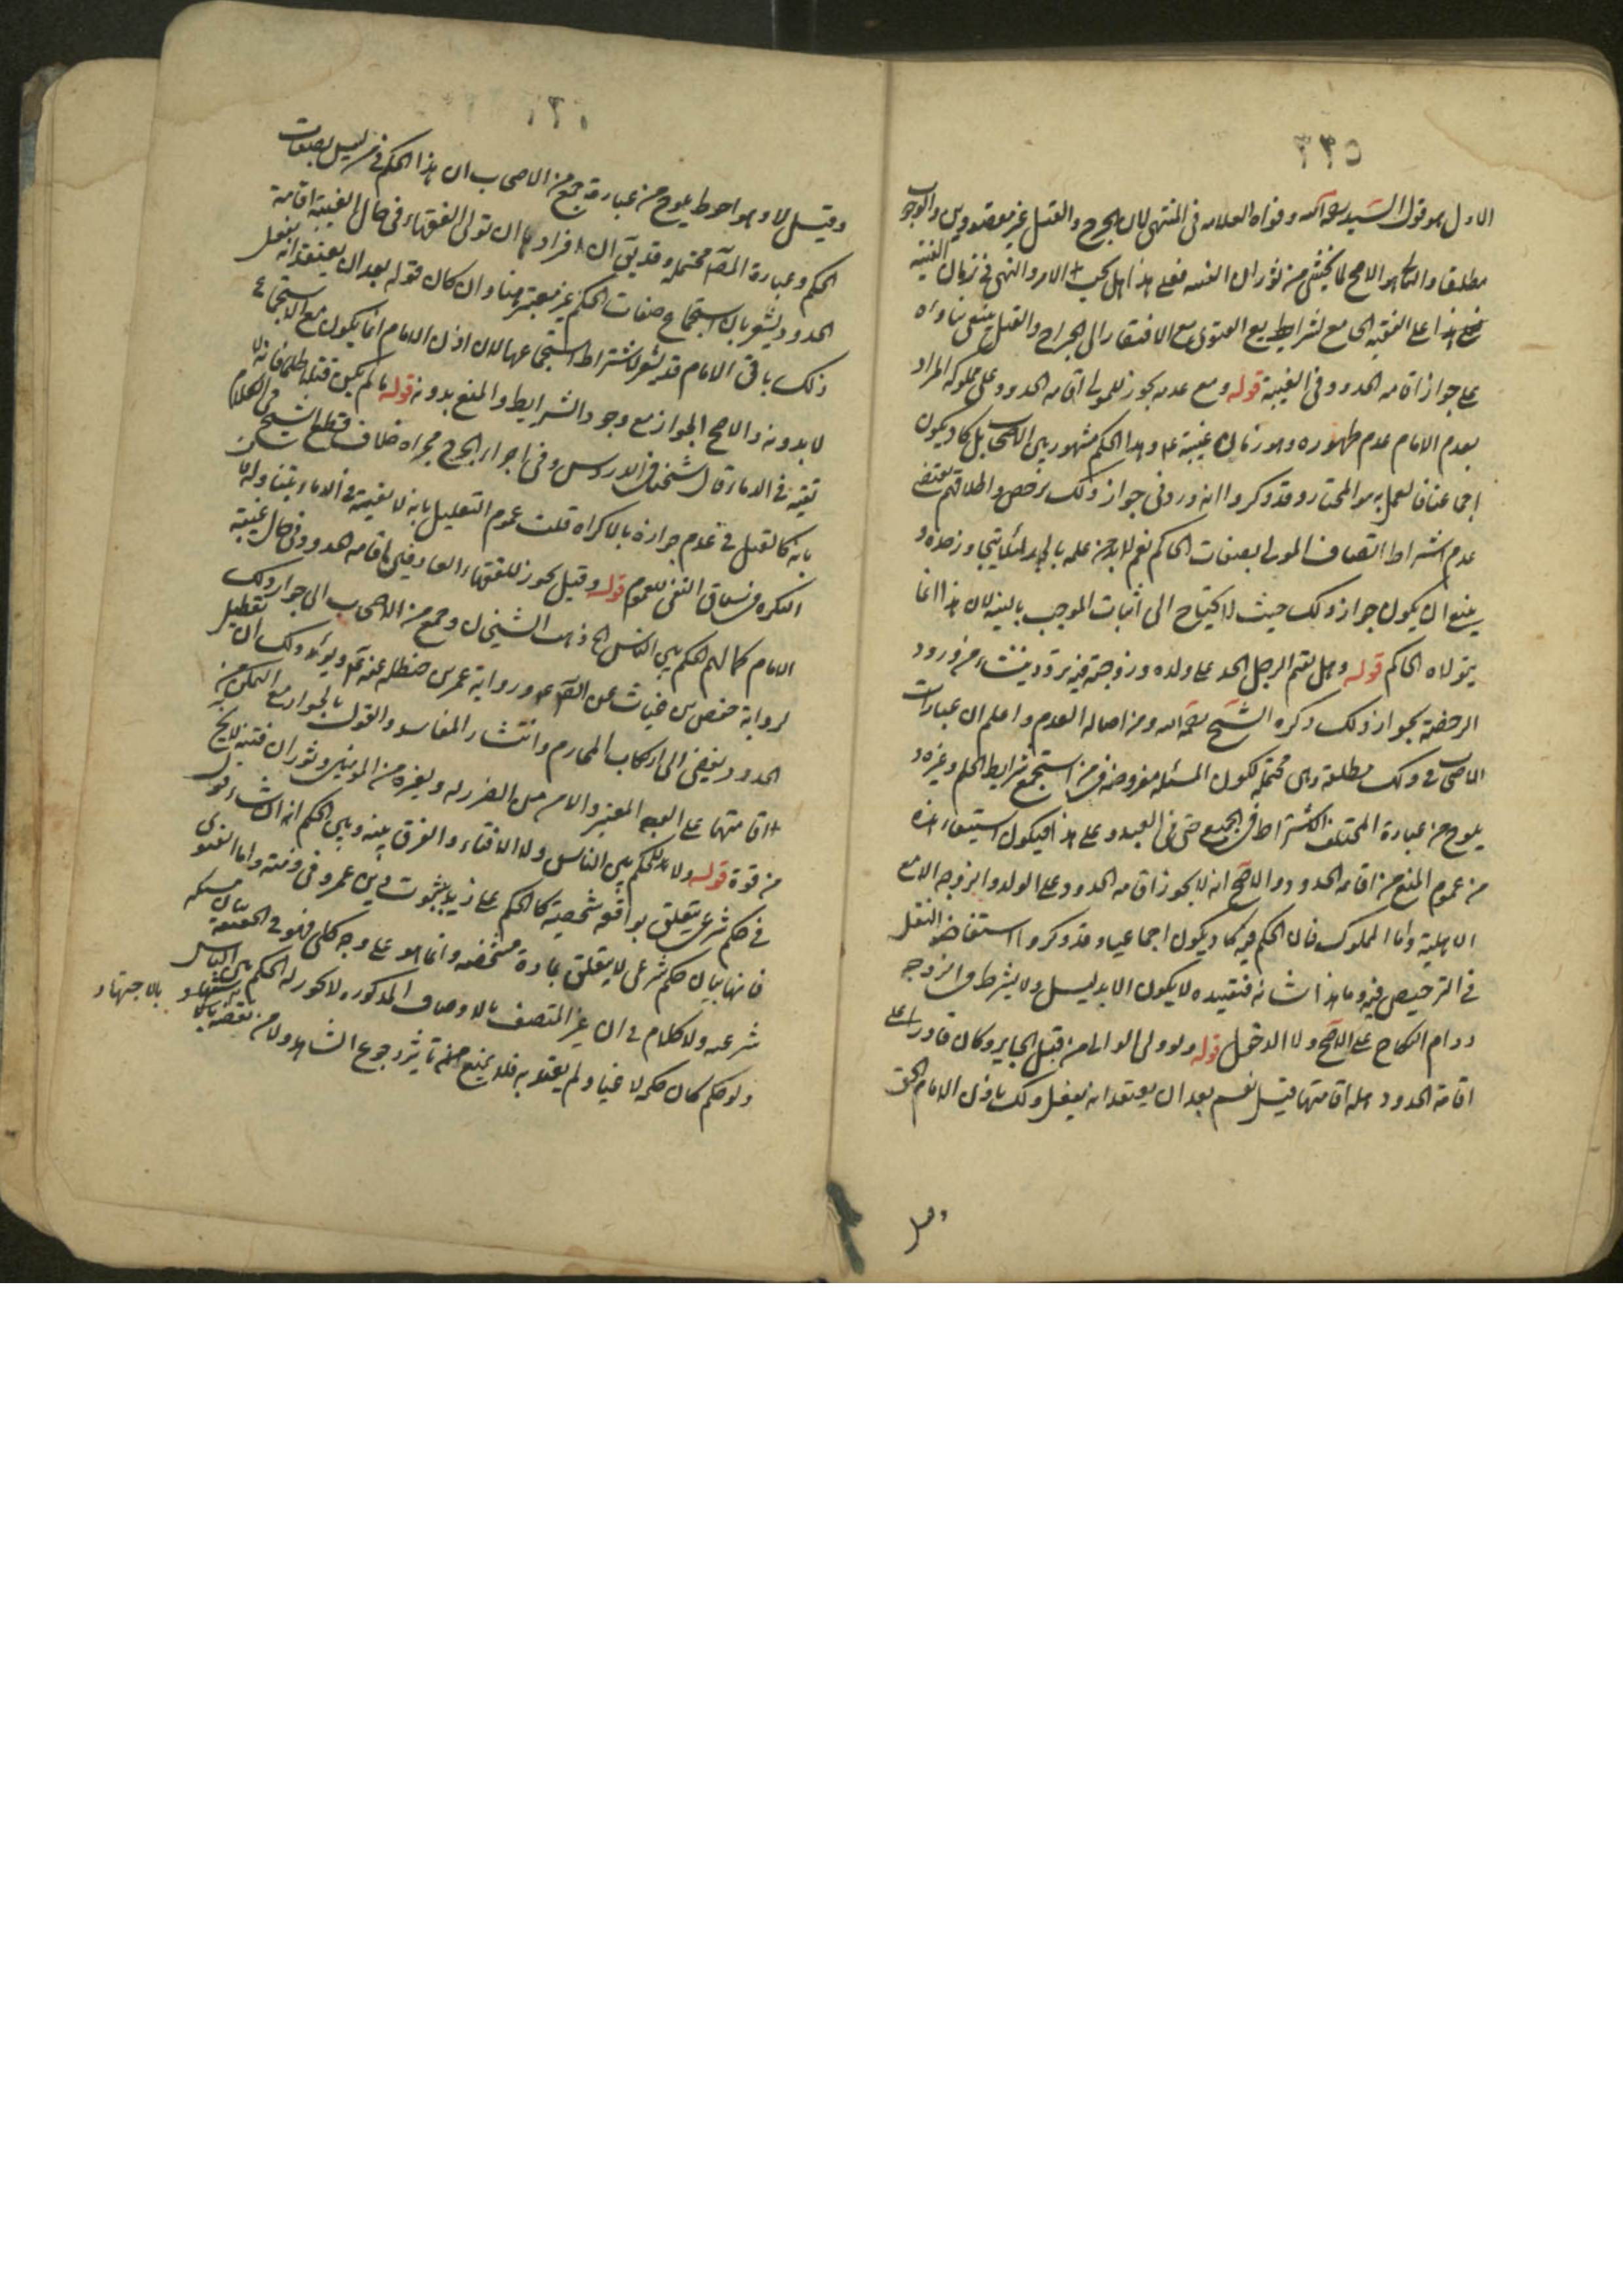 ٣٣٥
الاول هو قول السيد رحمه الله وقواه العلامه فى المنتهى لان الجرح والقتل غير مقصودين والوجوب
مطلقا والثانى هو الاصح لما يخشى من ثوران الفتنه فعلى هذا هل يجب الامر والنهى فى زمان الغيبه
هذا على الفقيه الجامع لشرايط الفتوى مع الافتقار الى الجراح والقتل ينبغى بناؤه
على جواز اقامه الحدود فى الغيبة قوله ومع عدمه يجوز للمولى اقامه الحدود على مملوكه المراد
بعدم الامام عدم ظهوره وهو زمان غيبته ع وهذا الحكم مشهور بين الاصحاب بل كاد يكون
اجماعنا فالعمل به هو المختار وقد ذكروا انه ورد فى جواز ذلك رخص واطلاقهم يقتضى
عدم اشتراط اتصاف المولى بصفات الحاكم نعم لابد من علمه بالحد
ينبغى ان يكون جواز ذلك حيث لا يحتاج الى اثبات الموجب بالبينه لان هذا انما
يتولاه الحاكم قوله وهل يقيم الرجل الحد على ولده وزوجته فيه تردد ينشاء من ورود
الرخصة بجواز ذلك ذكره الشيخ رحمه الله ومن اصالة العدم واعلم ان عبارات
الاصحاب فى ذلك مطلقة وهى محتمله لكون المسئله مفروضه فى من استجمع شرايط الحكم وغيره و
يلوح من عبارة المختلف الاشتراط فى الجميع حتى فى العبد وعلى هذا فيكون استيفاء هذه
من عموم المنع من اقامه الحدود والاصح انه لا يجوز اقامه الحدود على الولد والزوجه الا مع
الاهلية واما المملوك فان الحكم فيه كاد يكون اجماعيا وقد ذكروا استفاضه النقل
فى الترخيص فيه وما هذا شانه فتقييده لا يكون الا بدليل ولا يشترط فى الزوجه
دوام النكاح على الاصح ولا الدخول قوله ولو ولى الوالى من قبل الجاير وكان قادرا على
اقامة الحدود هل له اقامتها قيل نعم بعد ان يعتقد انه يفعل ذلك باذن الامام الحق
وقيل
وقيل لا وهو احوط يلوح من عبارة جمع من الاصحاب ان هذا الحكم فى من ليس بصفات
الحكم وعبارة المصنف محتمله وقد يق ان افراد ها ان تولى الفقهاء فى حال الغيبة اقامة
الحدود يشعر بان استجماع صفات الحكم غير معتبر هنا وان كان قوله بعد ان يعتقد انه يفعل
ذلك باذن الامام قد يشعر باشتراط استجماعها لان اذن الامام انما يكون مع الاستجماع
لا بدونه والاصح الجواز مع وجود الشرايط والمنع بدونه قوله ما لم يكن قتلا ظلما فانه لا
تقيه فى الدماء قال شيخنا فى الدروس وفى اجراء الجرح مجراه خلاف قطع الشيخ فى الكلام
بانه كالقتل فى عدم جوازه بالاكراه قلت عموم التعليل بانه لا تقية فى الدماء يتناوله لان
النكره فى سياق النفى للعموم قوله وقيل يجوز للفقهاء العارفين اقامه الحدود فى حال غيبة
الامام كما لهم الحكم بين الناس ذهب الشيخان وجمع من الاصحاب الى جواز ذلك
لرواية حفص بن غياث عن الصادق ع ورواية عمر بن حنظله عنه ع ويؤيد ذلك ان تعطيل
الحدود يفضى الى ارتكاب المحارم وانتشار المفاسد والقول بالجواز مع التمكن من
اقامتها على الوجه المعتبر والامن من الضرر له ولغيره من المومنين وثوران فتنة لا يخ
من قوة قوله ولا الحكم بين الناس ولا الافتاء والفرق بينه وبين الحكم انه انشاء قول
فى حكم شرعى يتعلق بواقعة شخصية كالحكم على زيد بثبوت دين عمرو فى ذمته واما الفتوى
فانها بيان حكم شرعى لا يتعلق بمادة مشخصه وانما هو على وجه كلى فهو فى الحقيقة بيان مسئله
شرعيه ولا كلام فى ان غير المتصف بالاوصاف المذكوره لا يجوز له الحكم بين الناس
ولو حكم كان حكمه لاغيا ولم يعتد به فلا يمنع من تاثير رجوع الشاهد ولا من نقضه
بالاجتهاد